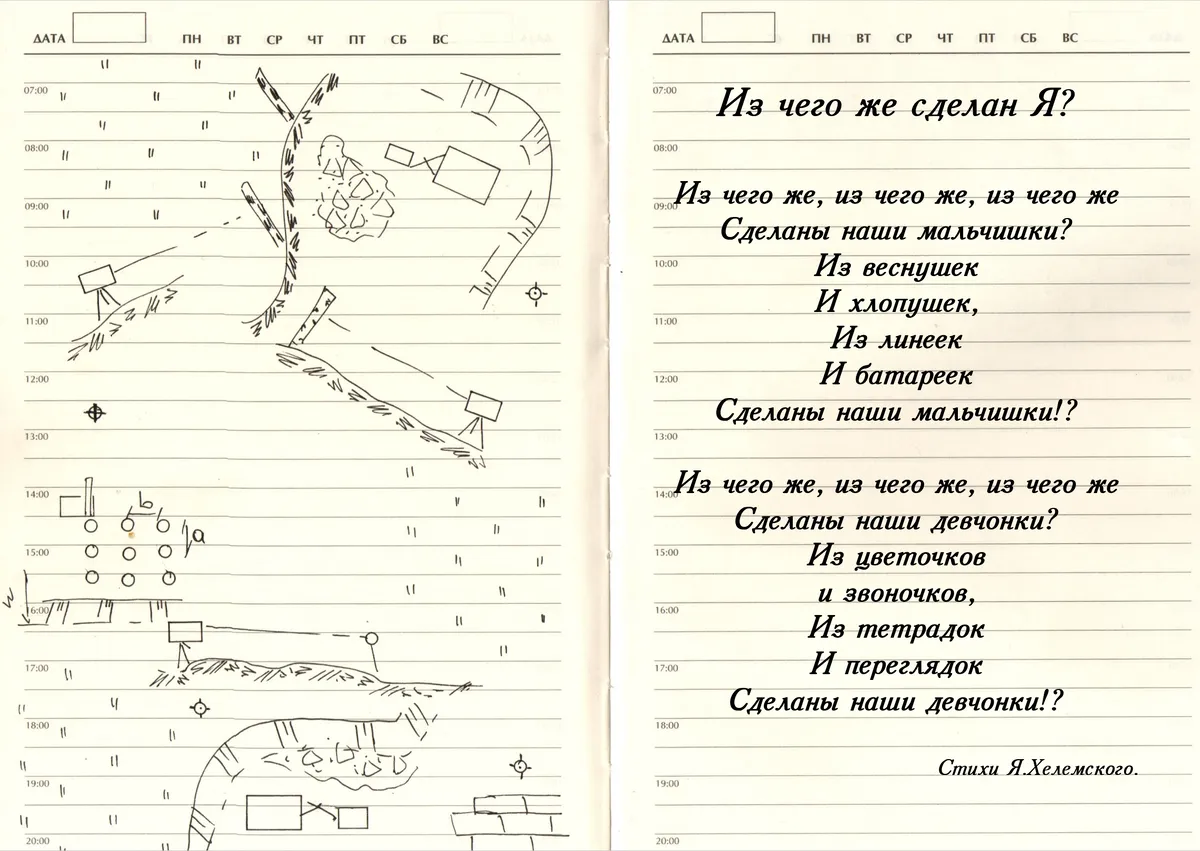 ДАТА ПН ВТ СР ЧТ ПТ СБ ВС
07:00
08:00
09:00
10:00
11:00
12:00
13:00
14:00
b
a
15:00
16:00
17:00
18:00
19:00
20:00
ДАТА ПН ВТ СР ЧТ ПТ СБ ВС
07:00
Из чего же сделан Я?
08:00
Из чего же, из чего же, из чего же
09:00
Сделаны наши мальчишки?
10:00
Из веснушек
И хлопушек,
11:00
Из линеек
12:00
И батареек
Сделаны наши мальчишки!?
13:00
Из чего же, из чего же, из чего же
14:00
Сделаны наши девчонки?
15:00
Из цветочков
и звоночков,
16:00
Из тетрадок
17:00
И переглядок
Сделаны наши девчонки!?
18:00
Стихи Я.Хелемского.
19:00
20:00